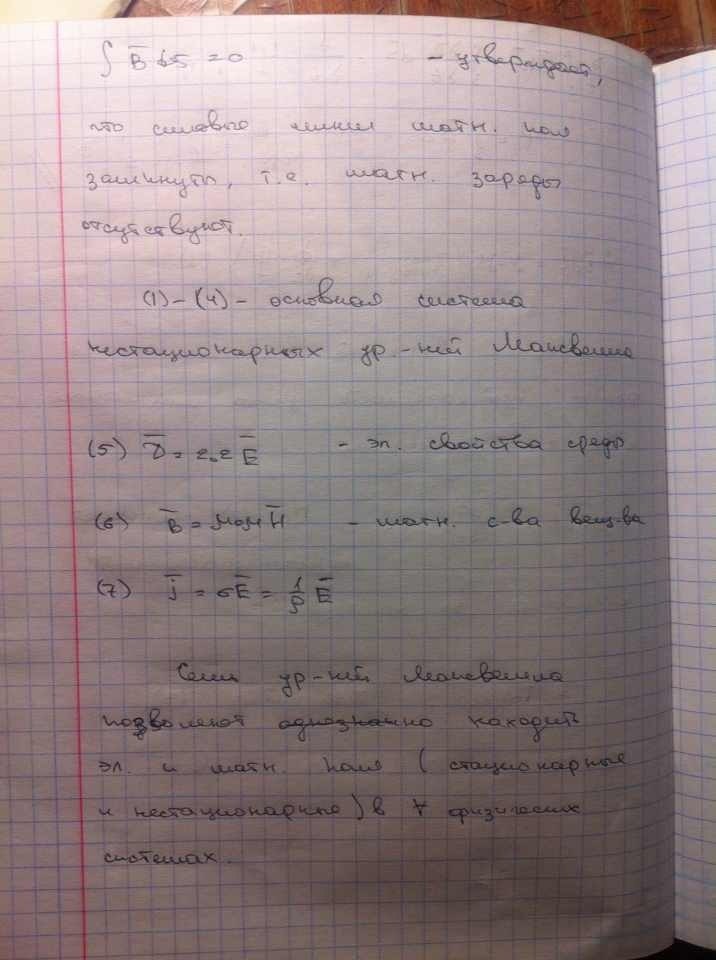 ∫ B̅ dS = 0 - утверждает,
что силовые линии магн. поля
замкнуты, т.е. магн. заряды
отсутствуют.
(1)-(4) - основная система
нестационарных ур.-ний Максвелла
(5) D̅ = ε₀ε E̅ - эл. свойства среды
(6) B̅ = μ₀μ H̅ - магн. с-ва вещ-ва
(7) j̅ = σE̅ = 1/ρ E̅
Семь ур-ний Максвелла
позволяют однозначно находить
эл. и магн. поля (стационарные
и нестационарные) в ∀ физических
системах.